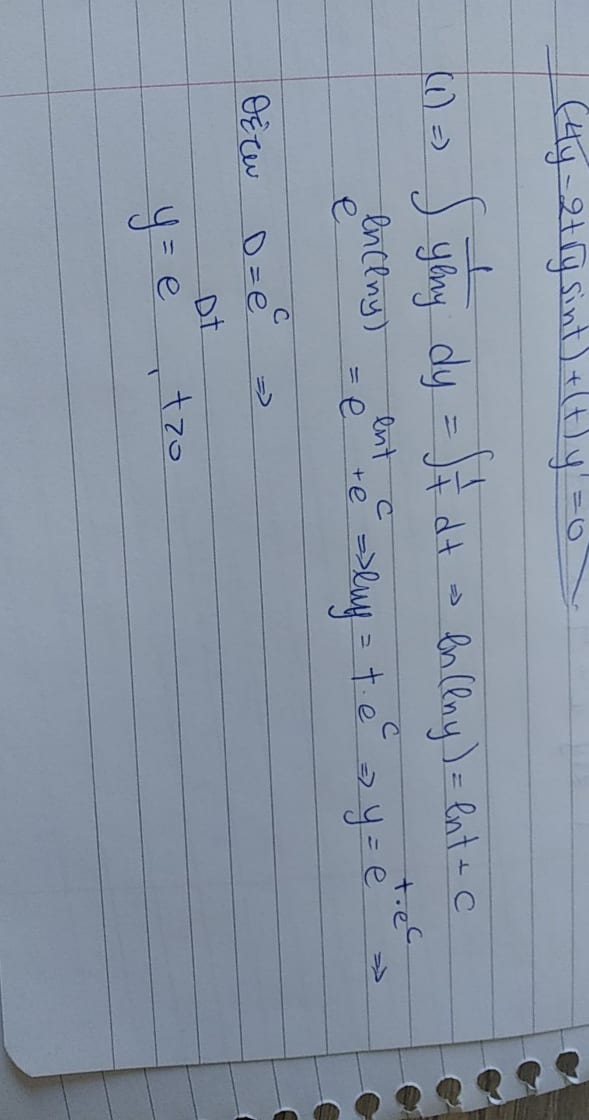 (4y - 2t√y sint) + (t) y' = 0
(1) ⇒ ∫ 1/(y lny) dy = ∫ 1/t dt ⇒ ln(lny) = lnt + c
e^ln(lny) = e^lnt + e^c ⇒ lny = t · e^c ⇒ y = e^(t·e^c) ⇒
θέτω D = e^c ⇒
y = e^Dt , t≥0